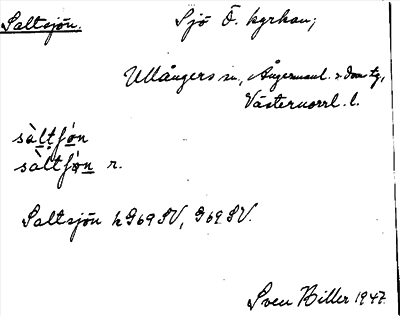 Saltsjön. Sjö Ö. kyrkan;
Ullångers sn, Ångermanl. s. doms tg,
Västernorrl. l.
sàltʃön
sàltʃön r.
Saltsjön k G69SV, G69SV.
Sven Biller 1947.